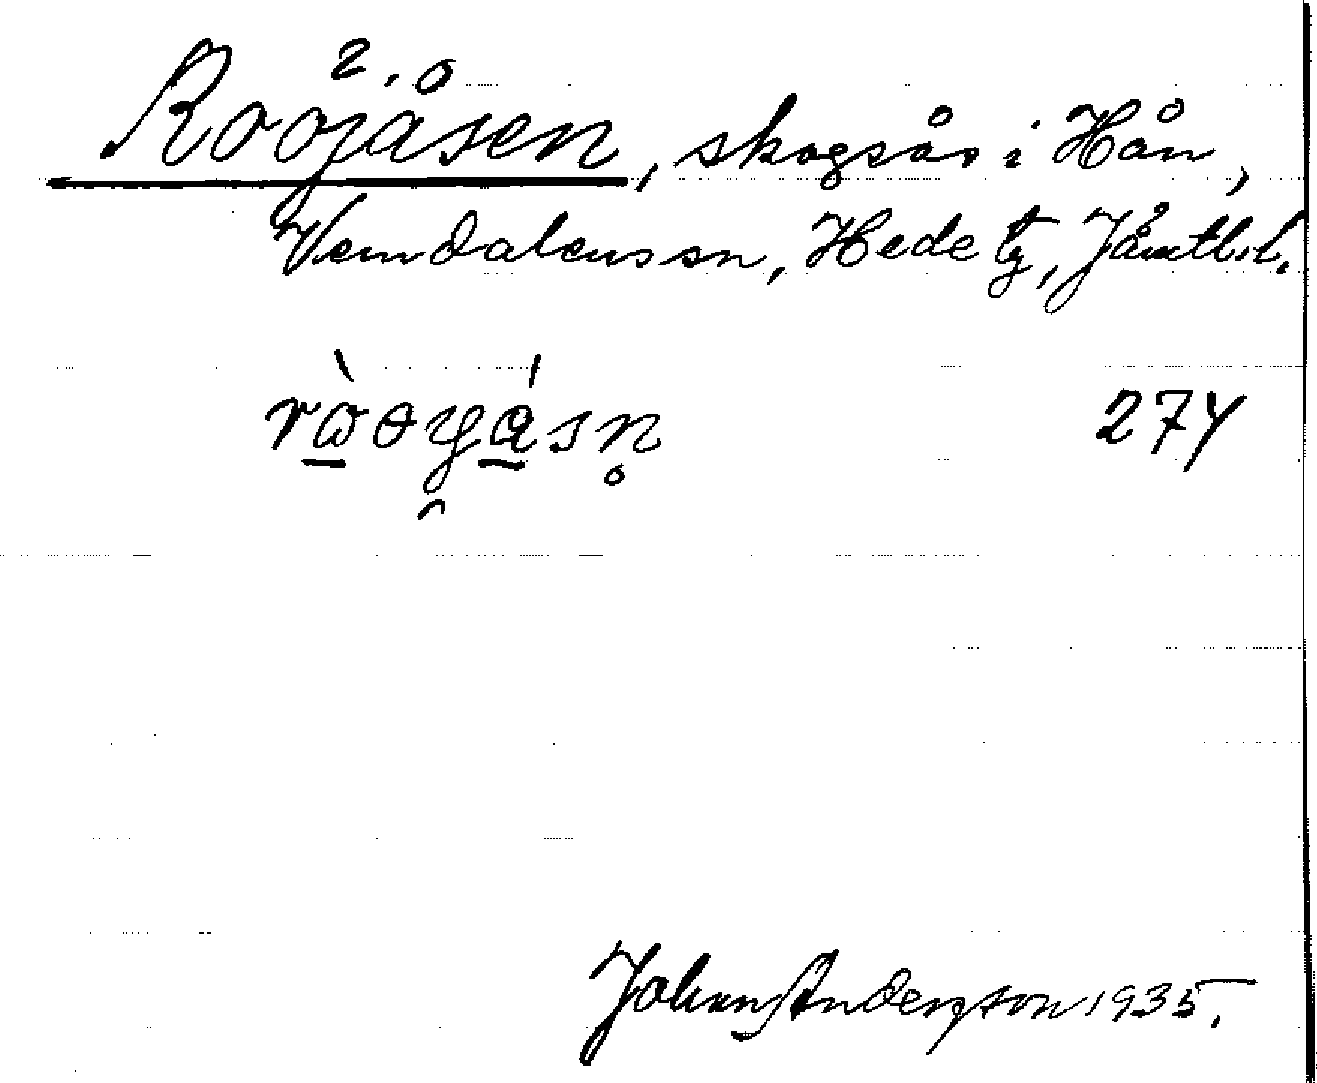 Roojåsen, skogsås i Hån,
Vemdalens sn, Hede tg, Jämtl.l.
274
Johan Anderson 1935.